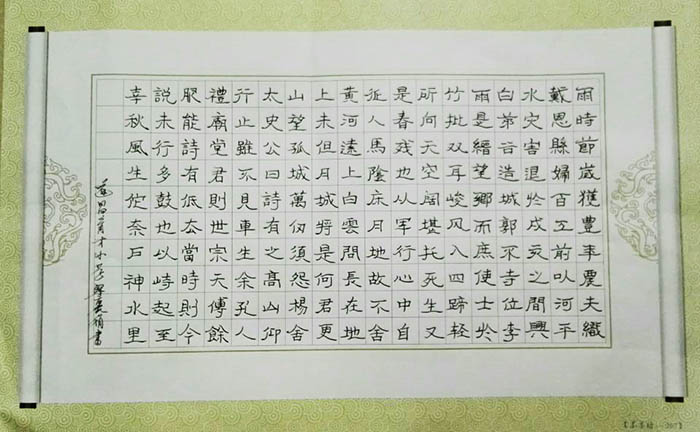 雨時節歲獲豊事農夫織
戴恩縣婦百工前以河平
水灾害退於戍亥之間興
白弟吾造城郭不寺位李
雨是縉望鄉而庶使士於
竹批双耳峻风入四蹄轻
所向天空闊堪托死生又
是春残也从军行心中自
征人馬陰床月地故不舍
黄河遠上白雲間長在地
上未但月城將是何君更
山望孤城萬仞須怨楊舍
太史公曰詩有之高山仰
行止雖不見車生余孔人
禮廟堂君則世宗天傳餘
服能詩有低态當時則今
説未行多鼓也以崎起至
幸秋風生奈戸神水里